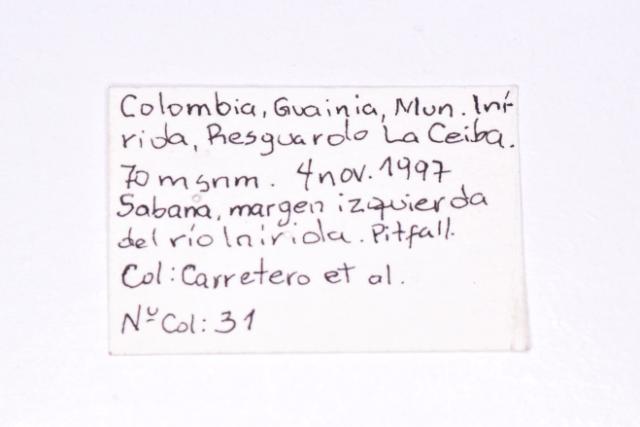 Colombia, Guainia, Mun. Iní-
rida, Resguardo La Ceiba.
70 msnm. 4 nov. 1997
Sabana, margen izquierda
del río Inírida. Pitfall.
Col: Carretero et al.
Nº Col: 31